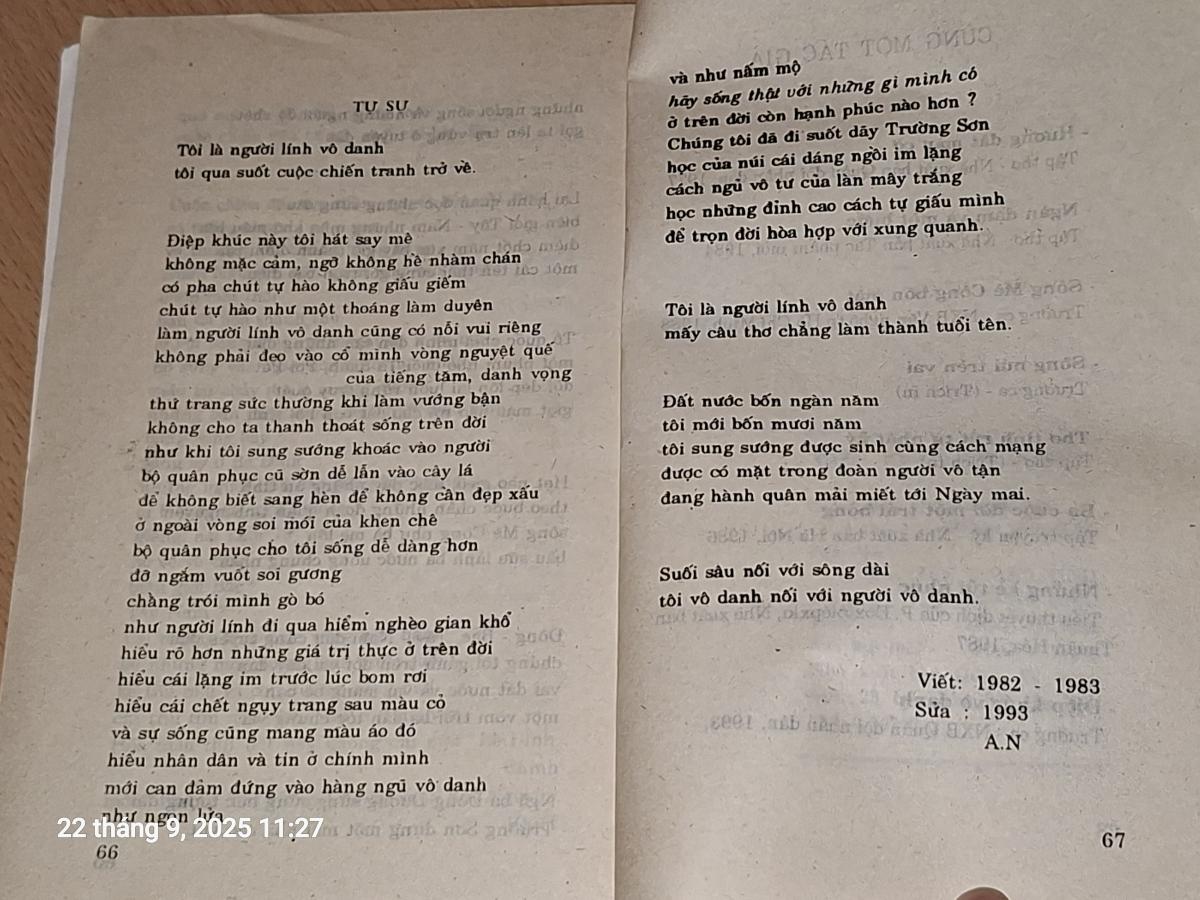 TỰ SỰ
Tôi là người lính vô danh
tôi qua suốt cuộc chiến tranh trở về.
Điệp khúc này tôi hát say mê
không mặc cảm, ngỡ không hề nhàm chán
có pha chút tự hào không giấu giếm
chút tự hào như một thoáng làm duyên
làm người lính vô danh cũng có nỗi vui riêng
không phải đeo vào cổ mình vòng nguyệt quế
của tiếng tăm, danh vọng
thứ trang sức thường khi làm vướng bận
không cho ta thanh thoát sống trên đời
như khi tôi sung sướng khoác vào người
bộ quân phục cũ sờn dễ lẫn vào cây lá
để không biết sang hèn để không cần đẹp xấu
ở ngoài vòng soi mói của khen chê
bộ quân phục cho tôi sống dễ dàng hơn
đỡ ngắm vuốt soi gương
chằng trói mình gò bó
như người lính đi qua hiểm nghèo gian khổ
hiểu rõ hơn những giá trị thực ở trên đời
hiểu cái lặng im trước lúc bom rơi
hiểu cái chết ngụy trang sau màu cỏ
và sự sống cũng mang màu áo đó
hiểu nhân dân và tin ở chính mình
mới can đảm đứng vào hàng ngũ vô danh
như ngọn lửa
22 tháng 9, 2025 11:27
66
và như nấm mộ
hãy sống thật với những gì mình có
ở trên đời còn hạnh phúc nào hơn ?
Chúng tôi đã đi suốt dãy Trường Sơn
học của núi cái dáng ngồi im lặng
cách ngủ vô tư của làn mây trắng
học những đỉnh cao cách tự giấu mình
để trọn đời hòa hợp với xung quanh.
Tôi là người lính vô danh
mấy câu thơ chẳng làm thành tuổi tên.
Đất nước bốn ngàn năm
tôi mới bốn mươi năm
tôi sung sướng được sinh cùng cách mạng
được có mặt trong đoàn người vô tận
đang hành quân mải miết tới Ngày mai.
Suối sâu nối với sông dài
tôi vô danh nối với người vô danh.
Viết: 1982 - 1983
Sửa : 1993
A.N
67